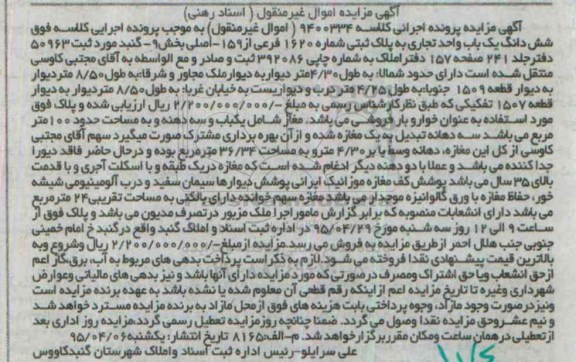 آگهی مزایده اموال غیرمنقول ( اسناد رهنی )
آگهی مزایده پرونده اجرائی کلاسه ۹۴۰۰۳۳۴ ( اموال غیرمنقول) به موجب پرونده اجرایی کلاسه فوق
شش دانگ یک باب واحد تجاری به پلاک ثبتی شماره ۱۶۲۰ فرعی از۱۵۹-اصلی بخش۹- گنبد مورد ثبت ۵۰۹۶۳
دفترجلد ۲۴۱ صفحه ۱۵۷ دفتراملاک به شماره چاپی ۳۹۲۰۸۶ ثبت و صادر و مع الواسطه به آقای مجتبی کاوسی
منتقل شده است دارای حدود شمالا: به طول۴/۳۰متر دیواربه دیوارملک مجاور و شرقا:به طول ۸/۵۰ متردیوار
به دیوار قطعه ۱۵۰۹ جنوبا:به طول ۴/۲۵ متر درب و دیواریست به خیابان غربا: به طول ۸/۵۰ متردیوار به دیوار
قطعه ۱۵۰۷ تفکیکی که طبق نظرکارشناس رسمی به مبلغ -/۲/۲۰۰/۰۰۰/۰۰۰ ریال ارزیابی شده و پلاک فوق
مورد استفاده به عنوان خواروبار فروشی می باشد. مغازه شامل یکباب و سه دهنه و به مساحت حدود ۱۰۰متر
مربع می باشد سه دهانه تبدیل به یک مغازه شده و ازآن بهره برداری مشترک صورت میگیرد سهم آقای مجتبی
کاوسی از کل این مغازه، دهانه وسط با بر ۴/۳۰ مترو به مساحت ۳۶/۳۴ مترمربع بوده و درحال حاضر فاقد دیورا
جدا کننده می باشد و عملا با دو دهنه دیگر ادغام شده است که مغازه دریک طبقه و با اسکلت آجری و با قدمت
بالای ۳۵ سال می باشد پوشش کف مغازه موزائیک ایرانی پوشش دیوارها سیمان سفید و درب آلومینیومی شیشه
خور، حفاظ مغازه با ورق گالوانیزه موجدار می باشد مغازه سهم خوانده دارای بالکنی به مساحت تقریبی ۲۴ مترمربع
می باشد دارای انشعابات منصوبه که برابر گزارش مامور اجرا ملک مزبور در تصرف مدیون می باشد و پلاک فوق از
ساعت ۹ الی ۱۲ روز سه شنبه مورخ ۹۵/۰۴/۲۹ در اداره ثبت اسناد و املاک گنبد واقع در گنبد خ امام خمینی
جنوبی جنب هلال احمر از طریق مزایده به فروش می رسد.مزایده از مبلغ-/۲/۲۰۰/۰۰۰/۰۰۰ ریال وشروع وبه
بالاترین قیمت پیشنهادی نقدا فروخته می شود.لازم به ذکراست پرداخت بدهی های مربوط به آب، برق،گاز اعم
ازحق انشعاب ویا حق اشتراک ومصرف درصورتی که مورد مزایده دارای آنها باشد و نیز بدهی های مالیاتی وعوارض
شهرداری وغیره تا تاریخ مزایده اعم ازاینکه رقم قطعی آن معلوم شده یا نشده باشد به عهده برنده مزایده است
ونیزدرصورت وجود مازاد، وجوه پرداختی بابت هزینه های فوق ازمحل مازاد به برنده مزایده مسترد خواهد شد
و نیم عشروحق مزایده نقدا وصول می گردد. ضمنا چنانچه روزمزایده تعطیل رسمی گردد،مزایده روز اداری بعد
ازتعطیلی درهمان ساعت ومکان مقرربرگزارخواهد شد. م-الف۸۱۶۵ تاریخ انتشار: یکشنبه۹۵/۰۴/۰۶
علی سرایلو-رئیس اداره ثبت اسناد واملاک شهرستان گنبدکاووس